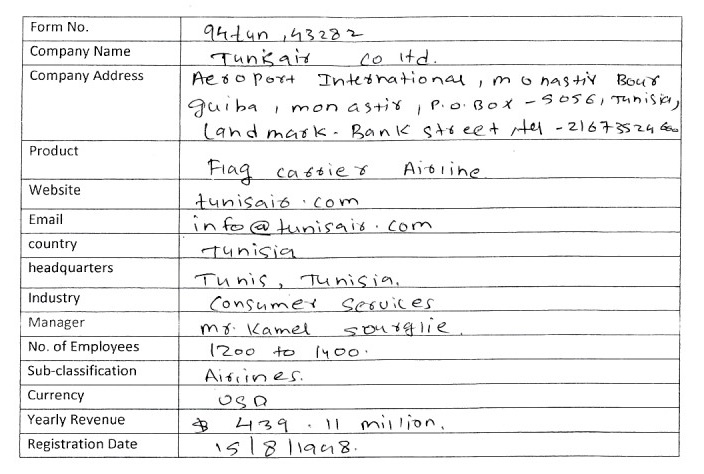 Form No. 94tun, 43282
Company Name Tunisair co ltd.
Company Address Aeroport International, monastir Bour
guiba, monastir, P.O.BOX - 5056, Tunisia,
Landmark - Bank street, tel - 21673524600
Product Flag carrier Airline
Website tunisair.com
Email info@tunisair.com
country Tunisia
headquarters Tunis, Tunisia.
Industry Consumer Services
Manager mr. Kamel sourglie.
No. of Employees 1200 to 1400.
Sub-classification Airlines.
Currency USD
Yearly Revenue $ 439.11 million.
Registration Date 15/8/1948.